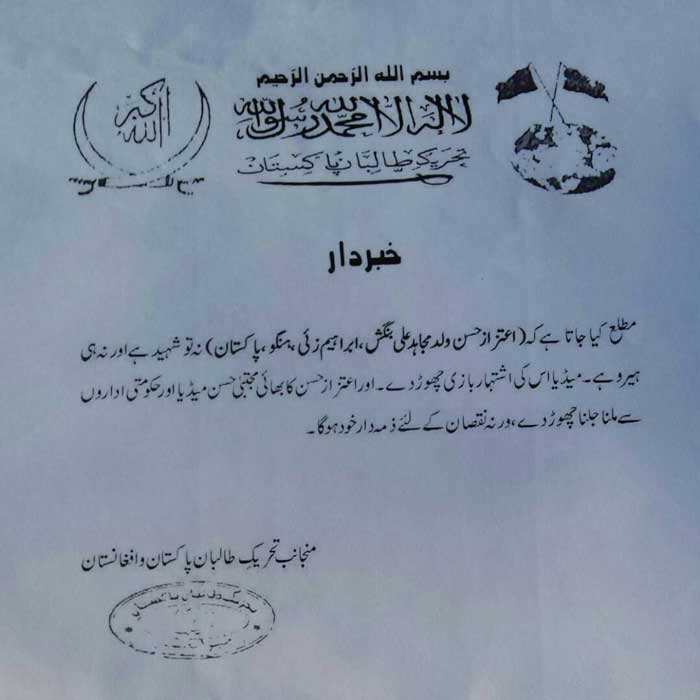 بسم الله الرحمن الرحيم
لا اله الا الله محمد رسول الله
تحریک طالبان پاکستان
الله اکبر
خبردار
مطلع کیا جاتا ہے کہ (اعتزاز حسن ولد مجاہد علی بنگش، ابراہیم زئی، ہنگو، پاکستان) نہ تو شہید ہے اور نہ ہی
ہیرو ہے۔ میڈیا اس کی اشتہار بازی چھوڑ دے۔ اور اعتزاز حسن کا بھائی مجتبیٰ حسن میڈیا اور حکومتی اداروں
سے ملنا جلنا چھوڑ دے، ورنہ نقصان کے لئے ذمہ دار خود ہوگا۔
منجانب تحریک طالبان پاکستان و افغانستان
تحریک طالبان پاکستان